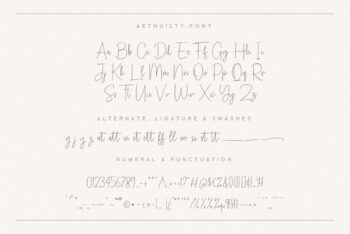 AETHUISTY FONT
Aa Bb Cc Dd Ee Ff Gg Hh Ii
Jj Kk Ll Mm Nn Oo Pp Qq Rr
Ss Tt Uu Vv Ww Xx Yy Zz
ALTERNATE, LIGATURE & SWASHES
g j y z at att ee et ett ff ll oo is it tt
NUMERAL & PUNCTUATION
0123456789